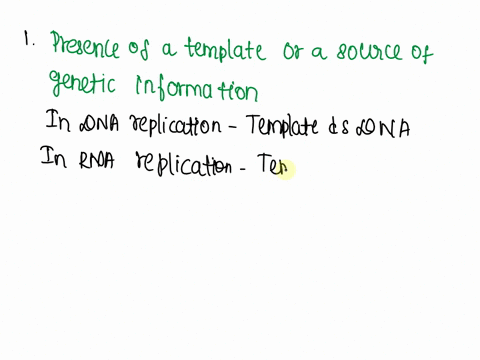 1. Presence of a template or a source of
genetic information
In DNA replication - Template ds DNA
In RNA replication - Tem